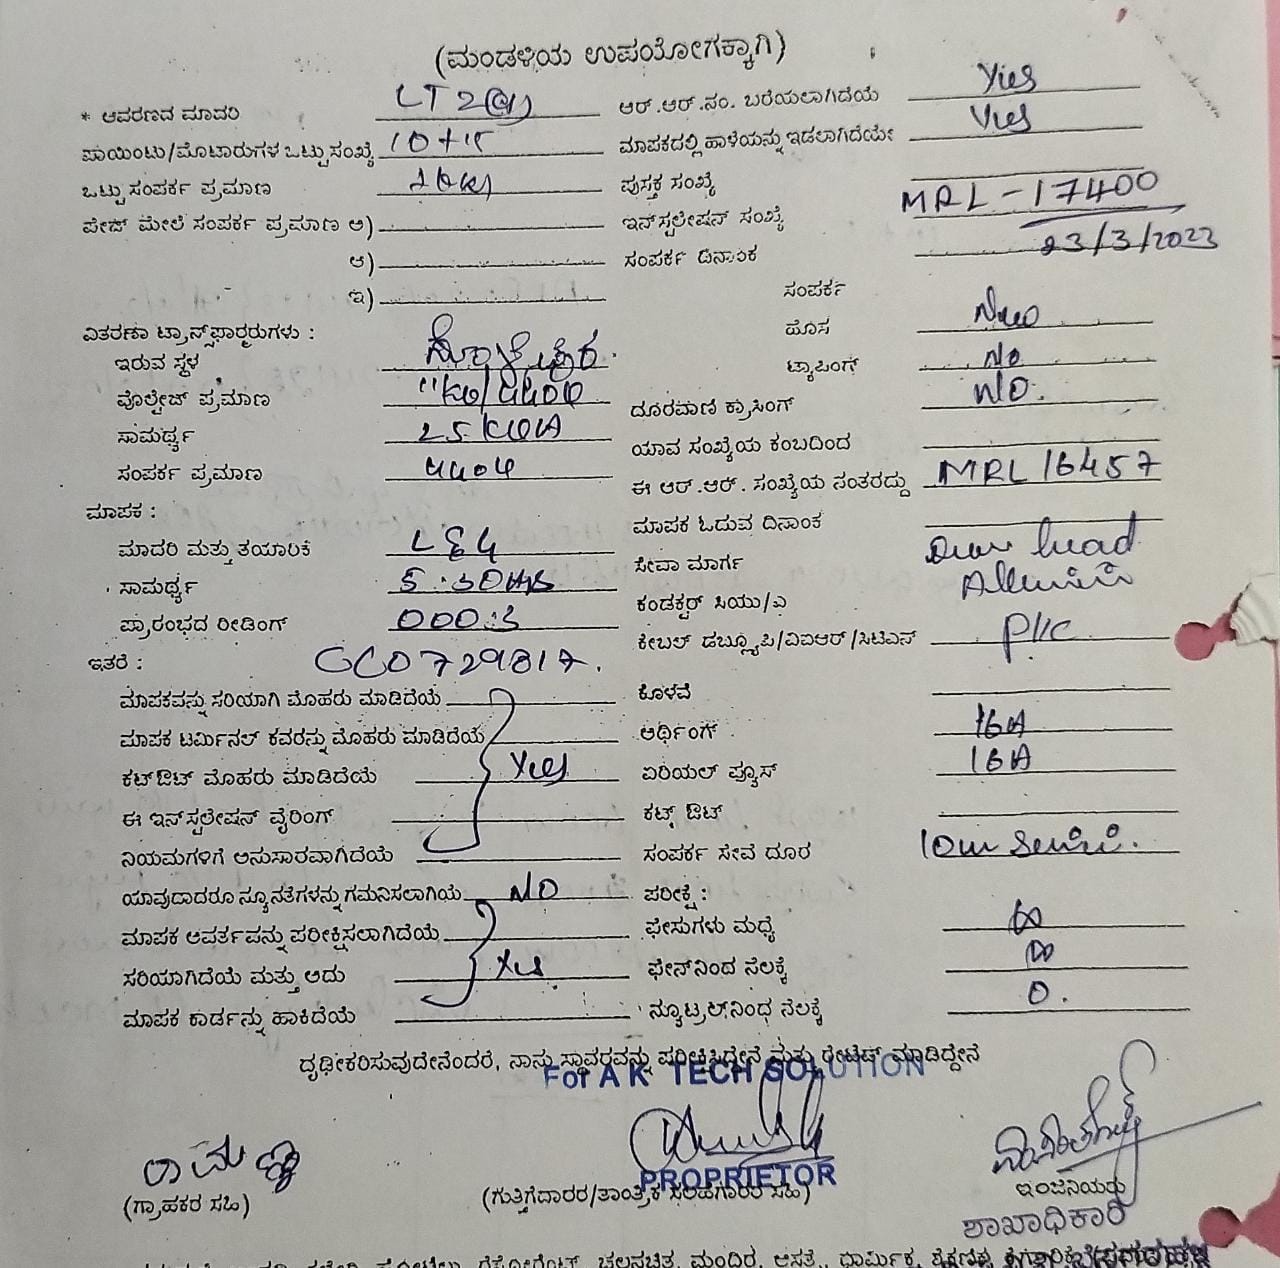 (ಮಂಡಳಿಯ ಉಪಯೋಗಕ್ಕಾಗಿ)
* ಆವರಣದ ಮಾದರಿ LT 2(a) ಆರ್.ಆರ್.ನಂ. ಬರೆಯಲಾಗಿದೆಯೆ Yes
ಪಾಯಿಂಟು/ಮೊಟಾರುಗಳ ಒಟ್ಟು ಸಂಖ್ಯೆ 10+15 ಮಾಪಕದಲ್ಲಿ ಹಾಳೆಯನ್ನು ಇಡಲಾಗಿದೆಯೇ Yes
ಒಟ್ಟು ಸಂಪರ್ಕ ಪ್ರಮಾಣ ಪುಸ್ತಕ ಸಂಖ್ಯೆ
ಪೇಜ್ ಮೇಲೆ ಸಂಪರ್ಕ ಪ್ರಮಾಣ ಅ) ಇನ್‌ಸ್ಟಲೇಷನ್ ಸಂಖ್ಯೆ MRL - 17400
ಆ) ಸಂಪರ್ಕ ದಿನಾಂಕ 23/3/2023
ಇ) ಸಂಪರ್ಕ
ವಿತರಣಾ ಟ್ರಾನ್ಸ್‌ಫಾರ್ಮರುಗಳು : ಹೊಸ New
ಇರುವ ಸ್ಥಳ ಟ್ಯಾಪಿಂಗ್ No
ವೊಲ್ಟೇಜ್ ಪ್ರಮಾಣ 11KV/440V ದೂರವಾಣಿ ಕ್ರಾಸಿಂಗ್ No.
ಸಾಮರ್ಥ್ಯ 25 KVA ಯಾವ ಸಂಖ್ಯೆಯ ಕಂಬದಿಂದ
ಸಂಪರ್ಕ ಪ್ರಮಾಣ 440V ಈ ಆರ್.ಆರ್. ಸಂಖ್ಯೆಯ ನಂತರದ್ದು MRL 16457
ಮಾಪಕ : ಮಾಪಕ ಓದುವ ದಿನಾಂಕ
ಮಾದರಿ ಮತ್ತು ತಯಾರಿಕೆ L&G ಸೇವಾ ಮಾರ್ಗ Over head
ಸಾಮರ್ಥ್ಯ 5-30A ಕಂಡಕ್ಟರ್ ಸಿಯು/ಎ
ಪ್ರಾರಂಭದ ರೀಡಿಂಗ್ 000.3 ಕೇಬಲ್ ಡಬ್ಲ್ಯೂಪಿ/ವಿಐಆರ್/ಸಿಟಿಎಸ್ PVC
ಇತರೆ : GC0729817.
ಮಾಪಕವನ್ನು ಸರಿಯಾಗಿ ಮೊಹರು ಮಾಡಿದೆಯೆ ಕೊಳವೆ
ಮಾಪಕ ಟರ್ಮಿನಲ್ ಕವರನ್ನು ಮೊಹರು ಮಾಡಿದೆಯೆ ಅರ್ಥಿಂಗ್ 16A
ಕಟ್‌ಔಟ್ ಮೊಹರು ಮಾಡಿದೆಯೆ Yes ಏರಿಯಲ್ ಪ್ಯೂಸ್ 16A
ಈ ಇನ್‌ಸ್ಟಲೇಷನ್ ವೈರಿಂಗ್ ಕಟ್ ಔಟ್
ನಿಯಮಗಳಿಗೆ ಅನುಸಾರವಾಗಿದೆಯೆ ಸಂಪರ್ಕ ಸೇವೆ ದೂರ 10m Service.
ಯಾವುದಾದರೂ ನ್ಯೂನತೆಗಳನ್ನು ಗಮನಿಸಲಾಗಿಯೆ NO ಪರೀಕ್ಷೆ :
ಮಾಪಕ ಆವರ್ತವನ್ನು ಪರೀಕ್ಷಿಸಲಾಗಿದೆಯೆ ಫೇಸುಗಳು ಮಧ್ಯೆ ∞
ಸರಿಯಾಗಿದೆಯೆ ಮತ್ತು ಅದು Yes ಫೇಸ್‌ನಿಂದ ನೆಲಕ್ಕೆ ∞
ಮಾಪಕ ಕಾರ್ಡನ್ನು ಹಾಕಿದೆಯೆ ನ್ಯೂಟ್ರಲ್‌ನಿಂಧ ನೆಲಕ್ಕೆ 0.
ದೃಢೀಕರಿಸುವುದೇನೆಂದರೆ, ನಾನು ಸ್ಥಾವರವನ್ನು ಪರೀಕ್ಷಿಸಿದ್ದೇನೆ ಮತ್ತು ರೇಟೆಡ್ ಮಾಡಿದ್ದೇನೆ
For A K TECH SOLUTION
ರಾಮಣ್ಣ
PROPRIETOR
(ಗ್ರಾಹಕರ ಸಹಿ) (ಗುತ್ತಿಗೆದಾರರ/ತಾಂತ್ರಿಕ ಸಲಹಗಾರರ ಸಹಿ) ಇಂಜಿನಿಯರು
ಶಾಖಾಧಿಕಾರಿ
ಚಲನಚಿತ್ರ ಮಂದಿರ, ಆಸತ್ರೆ, ಧಾರ್ಮಿಕ,